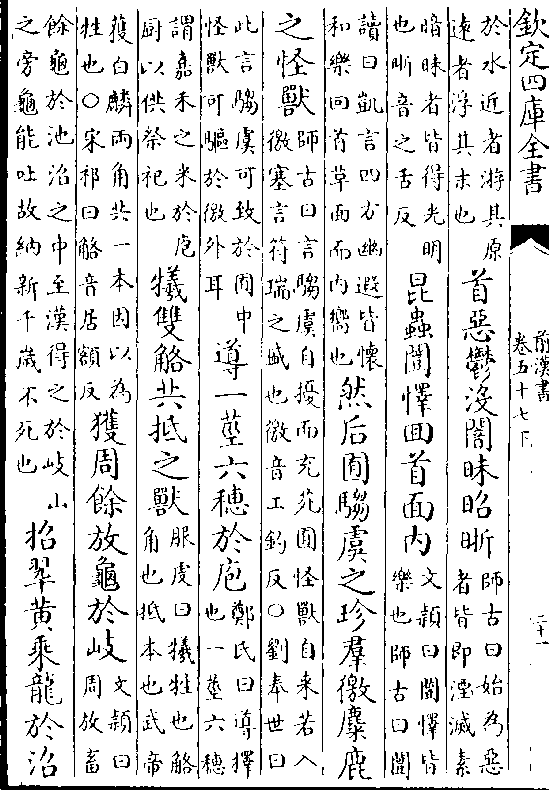 欽定四庫全書
前漢書
卷五十七下
於水近者游其原
遠者浮其末也
首惡鬱沒闇昧昭晰
師古曰始為惡
者皆即湮滅素
暗昧者皆得光明
也晰音之舌反
昆蟲闓懌回首面内
文穎曰闓懌皆
樂也師古曰闓
讀曰凱言四方幽遐皆懷
和樂回首革面而内嚮也
然后囿騶虞之珍羣徼麋鹿
之怪獸
師古曰言騶虞自擾而充苑囿怪獸自来若入
徼塞言符瑞之盛也徼音工釣反○劉奉世曰
此言騶虞可致於囿中
怪獸可驅於徼外耳
導一莖六穗於庖
鄭氏曰導擇
也一莖六穗
謂嘉禾之米於庖
厨以供祭祀也
犧雙觡共抵之獸
服虔曰犧牲也觡
角也抵本也武帝
獲白麟兩角共一本因以為
牲也○宋祁曰觡音居額反
獲周餘放龜於岐
文穎曰
周放畜
餘龜於池沼之中至漢得之於岐山
之旁龜能吐故納新千歲不死也
招翠黄乘龍於沼